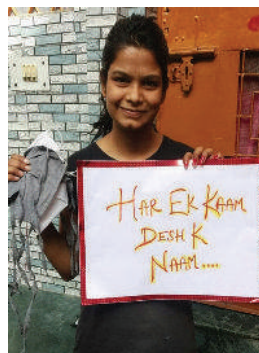 HAR EK KAAM
DESH K
NAAM....